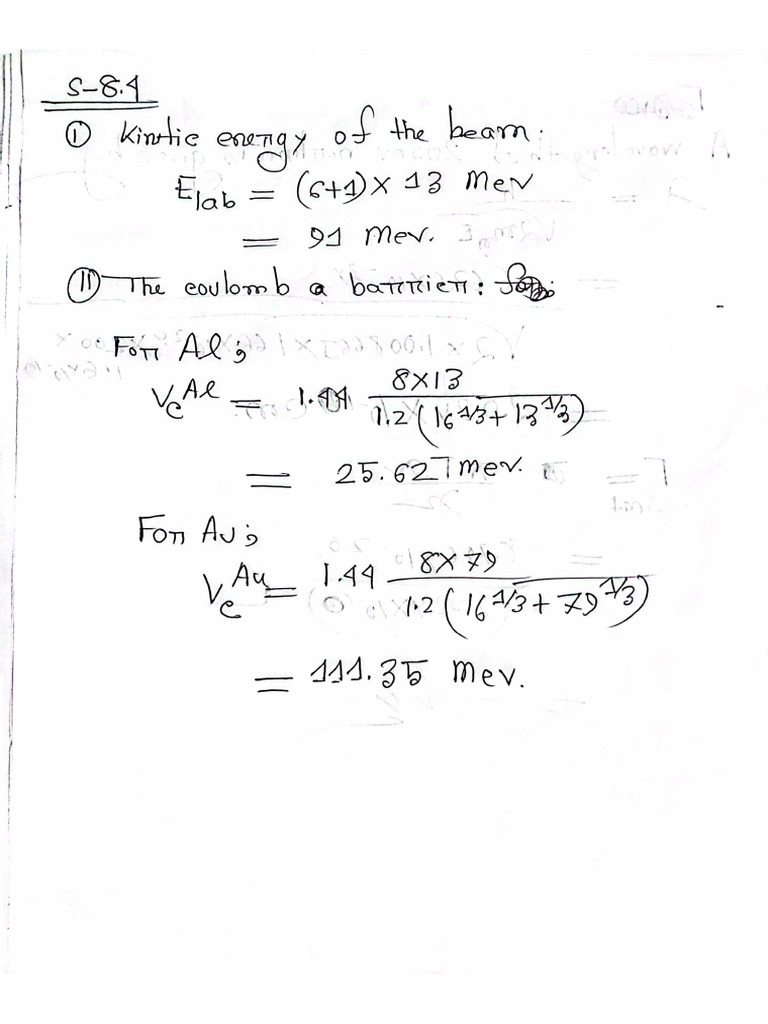 S-8.4
① Kinetic energy of the beam:
E_lab = (6+1) × 13 Mev
= 91 Mev.
② The coulomb a barrier:
For Al;
V_c^Al = 1.44 (8×13)/(1.2(16^1/3 + 13^1/3))
= 25.627 mev.
For Au;
V_c^Au = 1.44 (8×79)/(1.2(16^1/3 + 79^1/3))
= 111.35 mev.